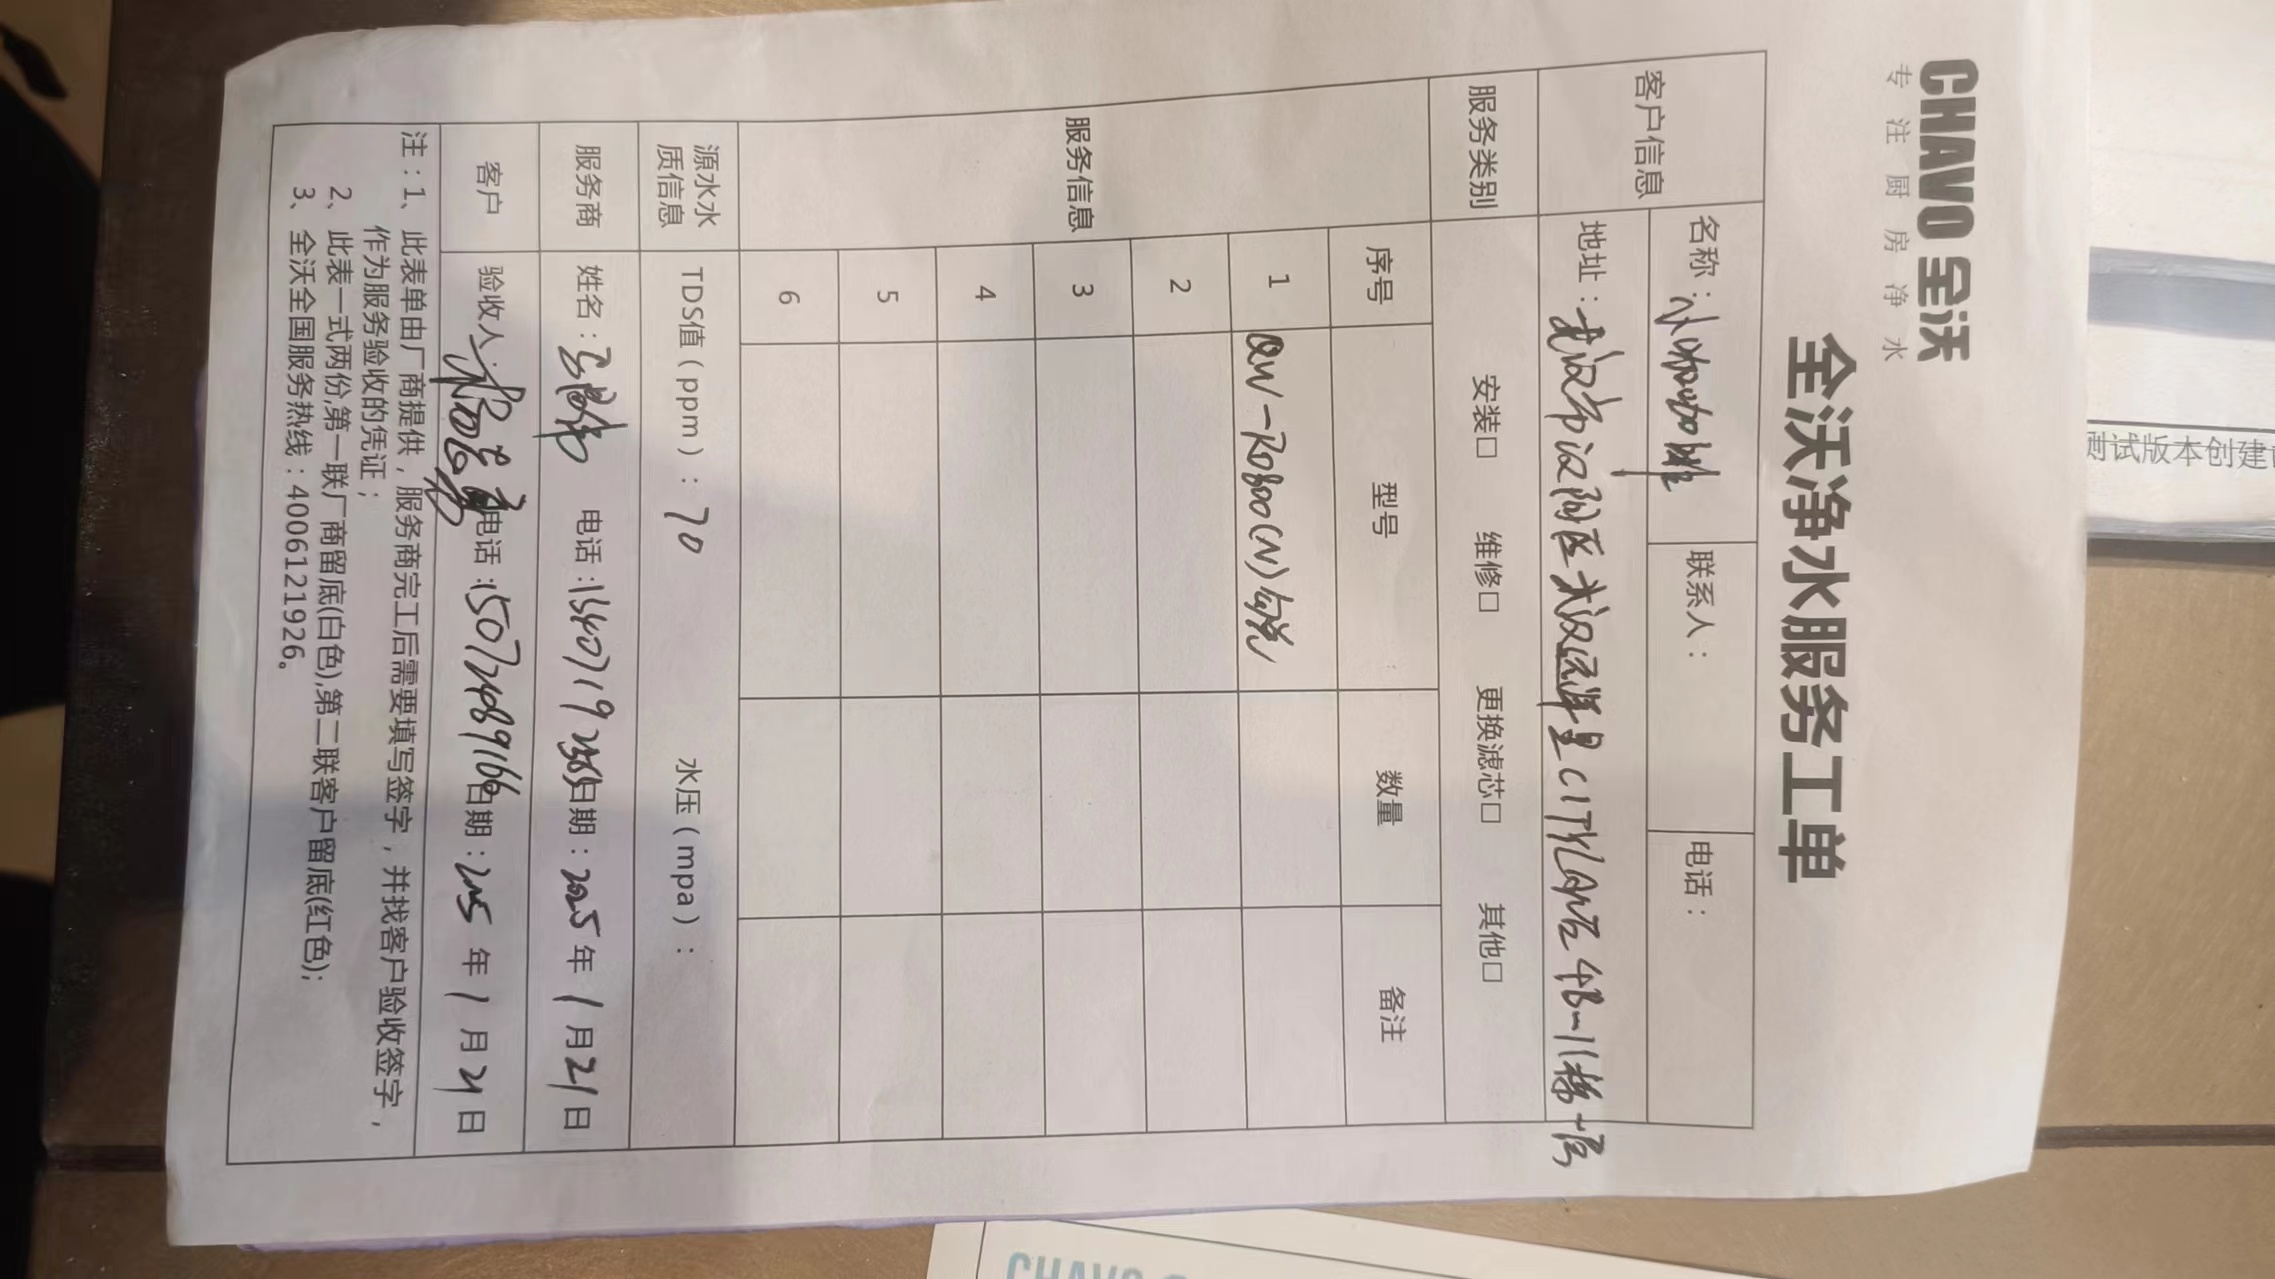 CHAVO 全沃
专注厨房净水
全沃净水服务工单
客户信息
名称： 联系人： 电话：
地址：武汉市汉阳区武汉 里CITYLANE 4B-1栋一层
服务类别 安装□ 维修□ 更换滤芯□ 其他□
服务信息
序号 型号 数量 备注
1 QW-RO800(N)
2
3
4
5
6
源水水质信息 TDS值（ppm）：70 水压（mpa）：
服务商 姓名： 电话： 日期：2025年1月21日
客户 验收人： 电话：15072489166 日期：2025年1月21日
注：1、此表单由厂商提供，服务商完工后需要填写签字，并找客户验收签字，
作为服务验收的凭证；
2、此表一式两份,第一联厂商留底(白色),第二联客户留底(红色)；
3、全沃全国服务热线：4006121926。
测试版本创建
CHAVO